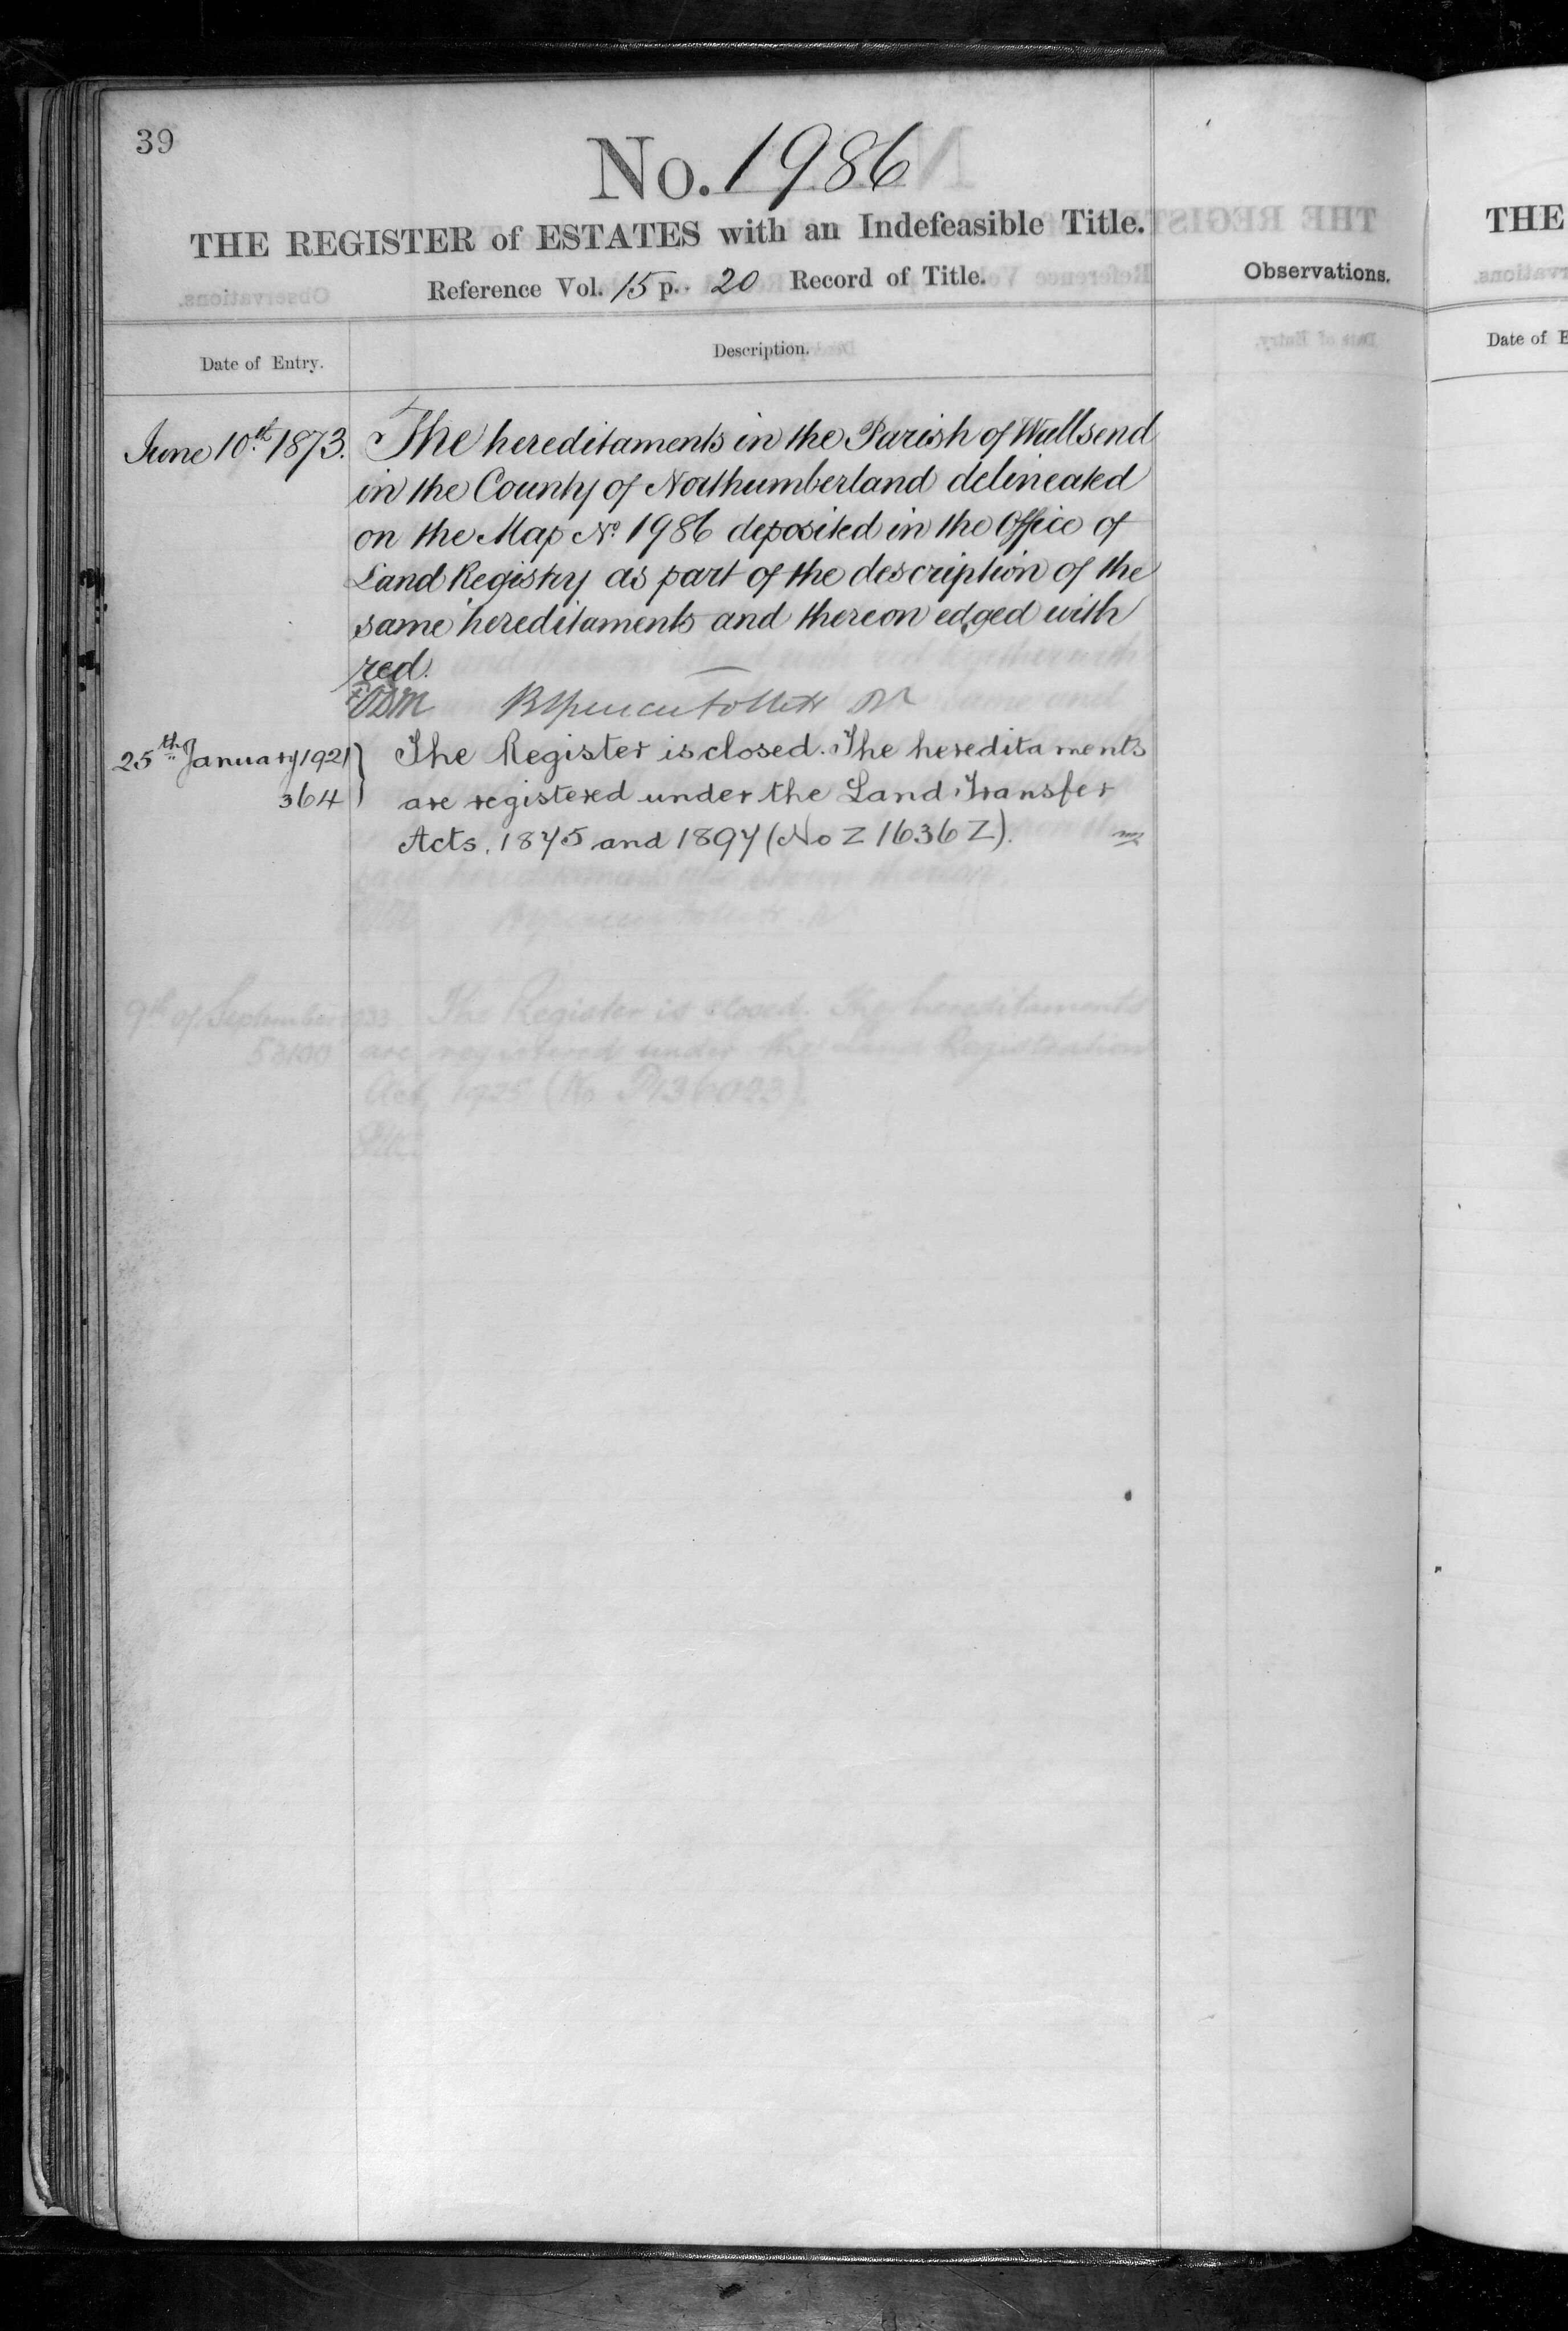 39
No. 1986
THE REGISTER of ESTATES with an Indefeasible Title.
Reference Vol. 15 p. 20 Record of Title.
Observations.
Date of Entry.
Description.
June 10th 1873.
The hereditaments in the Parish of Wallsend
in the County of Northumberland delineated
on the Map No. 1986 deposited in the Office of
Land Registry as part of the description of the
same hereditaments and thereon edged with
red.
25th January 1921
364
The Register is closed. The hereditaments
are registered under the Land Transfer
Acts, 1875 and 1897 (No Z 1636 Z).
9th of September 1933
The Register is closed. The hereditaments
are registered under the Land Registration
Act, 1925 (No P136023).
THE
Date of E